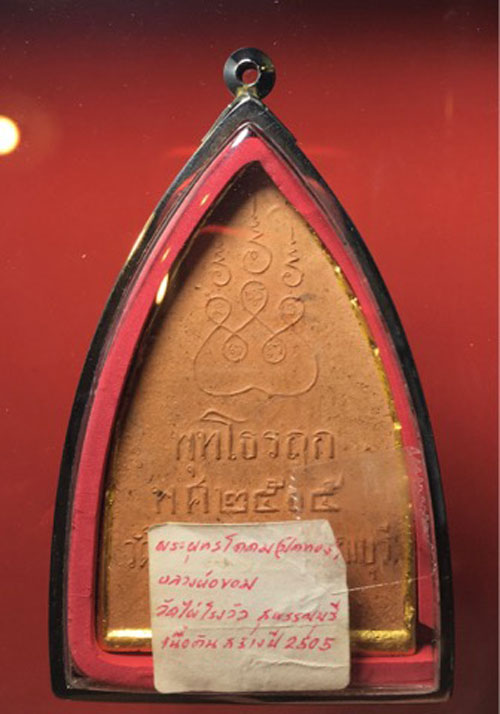 พุทโธรฤก
พศ
พระพุทธโคดม(ปิดทอง)
หลวงพ่อขอม
วัดไผ่โรงวัว สุพรรณบุรี
เนื้อดิน สร้างปี 2505